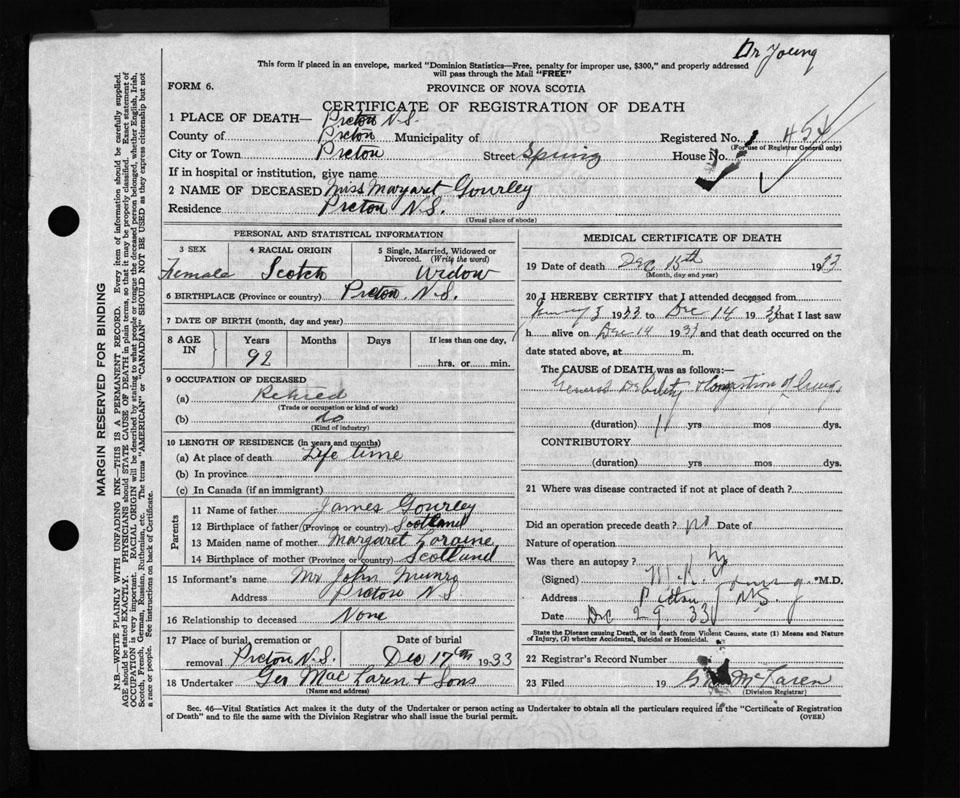 Dr Young
This form if placed in an envelope, marked "Dominion Statistics—Free, penalty for improper use, $300," and properly addressed
will pass through the Mail "FREE"
FORM 6.
PROVINCE OF NOVA SCOTIA
CERTIFICATE OF REGISTRATION OF DEATH
1 PLACE OF DEATH— Pictou N.S.
County of Pictou Municipality of Registered No. 454
(For use of Registrar General only)
City or Town Pictou Street Spring House No.
If in hospital or institution, give name
2 NAME OF DECEASED Miss Margaret Gourley
Residence Pictou N.S.
(Usual place of abode)
MARGIN RESERVED FOR BINDING
N.B.—WRITE PLAINLY WITH UNFADING INK—THIS IS A PERMANENT RECORD. Every item of information should be carefully supplied.
AGE should be stated EXACTLY. PHYSICIANS should STATE CAUSE OF DEATH in plain terms, so that it may be properly classified. Exact statement of
OCCUPATION is very important. RACIAL ORIGIN will be described by stating to what people or tongue the deceased person belonged, whether English, Irish,
Scotch, French, German, Russian, Ruthenian, etc. The terms "AMERICAN" or "CANADIAN" SHOULD NOT BE USED as they express citizenship but not
a race or people. See instructions on back of Certificate.
PERSONAL AND STATISTICAL INFORMATION
3 SEX
Female
4 RACIAL ORIGIN
Scotch
5 Single, Married, Widowed or
Divorced. (Write the word)
Widow
6 BIRTHPLACE (Province or country) Pictou N.S.
7 DATE OF BIRTH (month, day and year)
8 AGE IN
Years Months Days If less than one day,
92
hrs. or min.
9 OCCUPATION OF DECEASED
(a) Retired
(Trade or occupation or kind of work)
(b) do
(Kind of industry)
10 LENGTH OF RESIDENCE (in years and months)
(a) At place of death Life time
(b) In province
(c) In Canada (if an immigrant)
Parents
11 Name of father James Gourley
12 Birthplace of father (Province or country) Scotland
13 Maiden name of mother Margaret Loraine
14 Birthplace of mother (Province or country) Scotland
15 Informant's name Mr John Munro
Address Pictou N S
16 Relationship to deceased None
17 Place of burial, cremation or Date of burial
removal Pictou N.S. Dec 17th 1933
18 Undertaker Geo MacLaren + Sons
(Name and address)
MEDICAL CERTIFICATE OF DEATH
19 Date of death Dec 15th 1933
(Month, day and year)
20 I HEREBY CERTIFY that I attended deceased from
3 1933 to Dec 14 1933 that I last saw
h alive on Dec 14 1933 and that death occurred on the
date stated above, at m.
The CAUSE of DEATH was as follows:—
General Debility + Congestion of lungs
(duration) yrs mos dys.
CONTRIBUTORY
(duration) yrs mos dys.
21 Where was disease contracted if not at place of death?
Did an operation precede death? no Date of
Nature of operation
Was there an autopsy?
(Signed) Young M.D.
Address Pictou N.S.
Date Dec 29 33
State the Disease causing Death, or in death from Violent Causes, state (1) Means and Nature
of Injury, (2) whether Accidental, Suicidal or Homicidal.
22 Registrar's Record Number
23 Filed 19 McLaren
(Division Registrar)
Sec. 46—Vital Statistics Act makes it the duty of the Undertaker or person acting as Undertaker to obtain all the particulars required in the "Certificate of Registration
of Death" and to file the same with the Division Registrar who shall issue the burial permit.
(OVER)